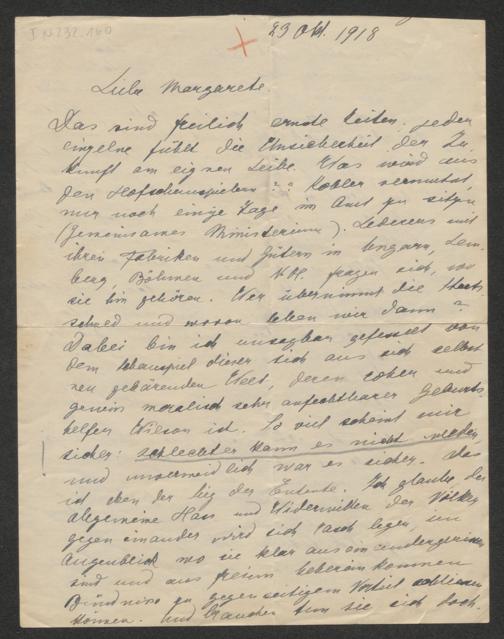 I N 232.140
23 Okt. 1918
Liebe Margarete
Das sind freilich ernste Zeiten. jeder
einzelne fühlt die Unsicherheit der Zu
kunft am eignen Leibe. Was wird aus
den Hofschauspielern? Kobler vermutet,
nur noch einige Tage im Amt zu sitzen
(Gemeinsames Ministerium). Lederers mit
ihren Fabriken und Gütern in Ungarn, Lem
berg, Böhmen und N.Ö. fragen sich, wo
sie hin gehören. Wer übernimmt die Staats
schuld und wovon leben wir dann?
Dabei bin ich unsagbar gefesselt von
dem Schauspiel dieser sich aus sich selbst
neu gebärenden Welt, deren roher und
gewiss moralisch sehr anfechtbarer Geburts
helfer Wilson ist. So viel scheint mir
sicher: schlechter kann es nicht werden,
und unvermeidlich war es sicher. Das
ist eben der Sieg der Entente. Ich glaube, der
allgemeine Hass und Widerwillen der Völker
gegen einander wird sich rasch legen, im
Augenblick wo sie klar auseinandergerissen
sind und aus freiem Übereinkommen
Bündnisse zu gegenseitigem Vorteil schliessen
können. Und brauchen tun sie sich doch.